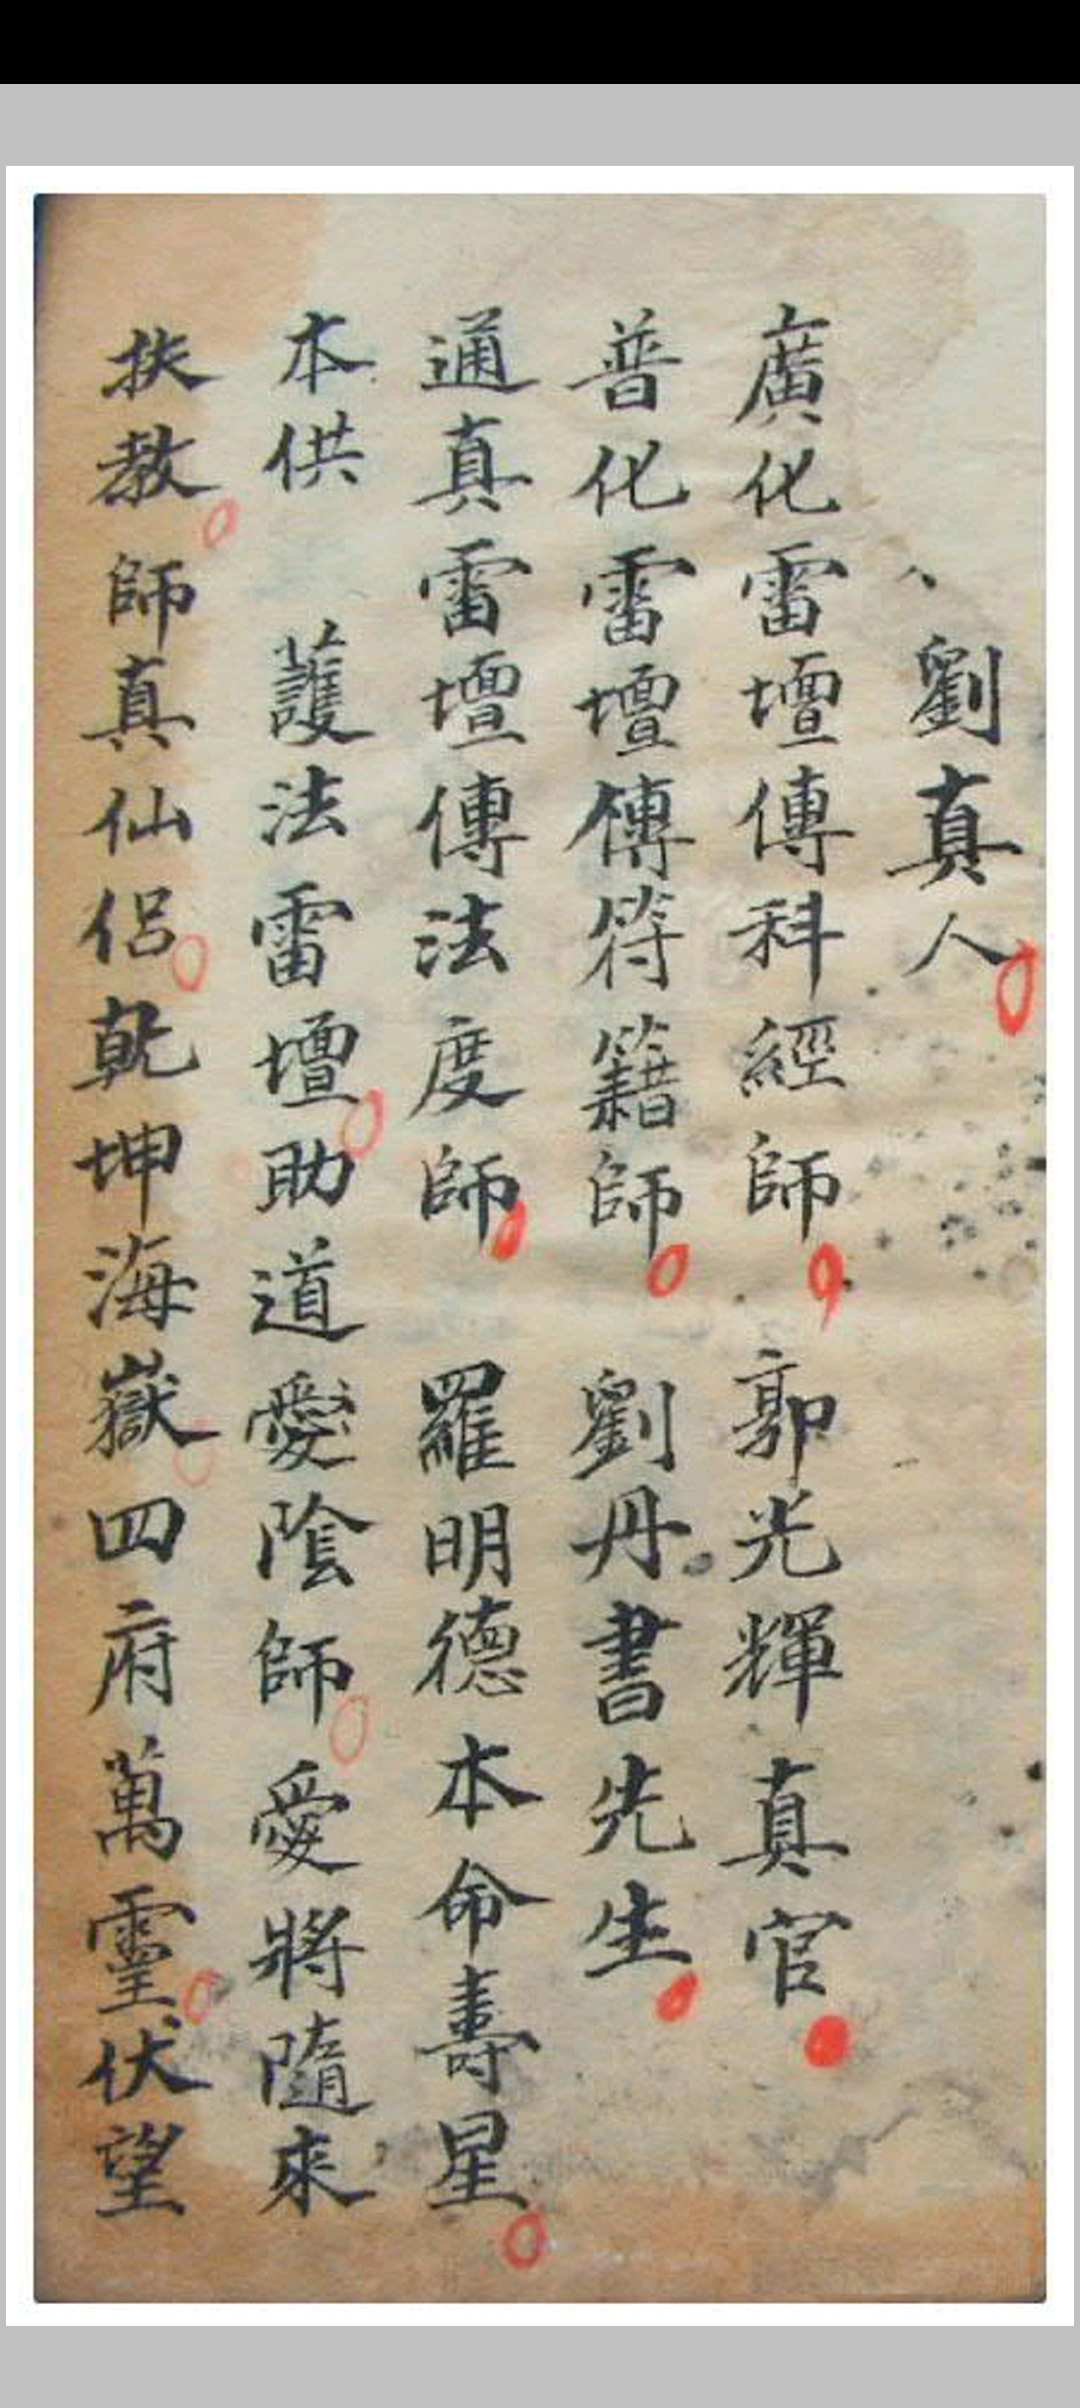 劉真人
廣化雷壇傳科經師 郭光輝真官
普化雷壇傳符籍師 劉丹書先生
通真雷壇傳法度師 羅明德本命壽星
本供 護法雷壇助道愛陰師愛將隨來
扶教師真仙侶乾坤海嶽四府萬靈伏望